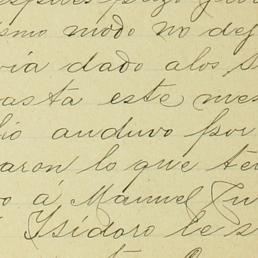 ismo modo no def
via dado alos s
asta este mes
lio anduvo por
aron lo que te
o á Manuel Ju
Isidoro le s